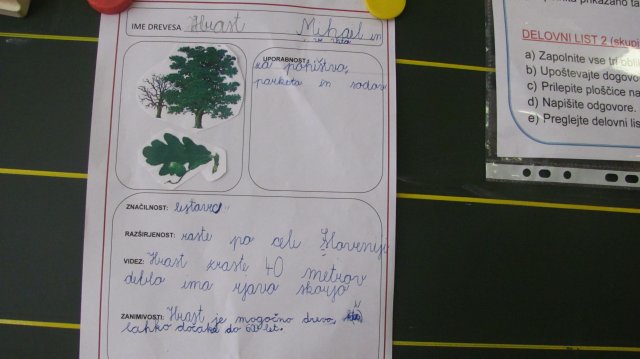 IME DREVESA Hrast Mihael in
UPORABNOST:
za pohištvo,
parketa in sodov
ZNAČILNOST: listavci
RAZŠIRJENOST: raste po celi Sloveniji
VIDEZ: Hrast zraste 40 metrov
deblo ima rjavo skorjo
ZANIMIVOSTI: Hrast je mogočno drevo,
lahko dočaka do 600 let.
DELOVNI LIST 2 (skupi
a) Zapolnite vse tri obli
b) Upoštevajte dogovo
c) Prilepite ploščice na
d) Napišite odgovore.
e) Preglejte delovni lis